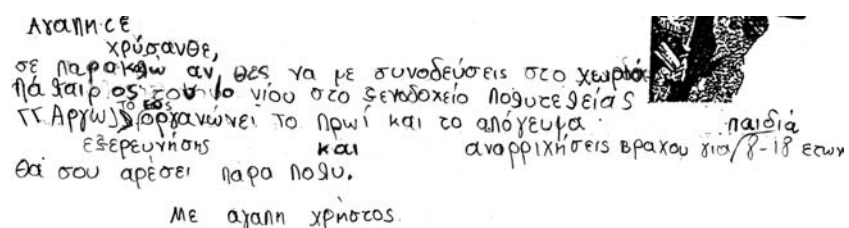 Αγαπη.ce
χρύσανθε,
σε παρακαλώ αν θες να με συνοδεύσεις στο
στο ξενοδοχείο πολυτελείας
οργανώνει το πρωί και το απόγευμα παιδιά
εξερευνήσης και αναρριχήσεις βραχου για 8-18 ετων
θα σου αρέσει παρα πολυ.
Με αγαπη χρήστος.